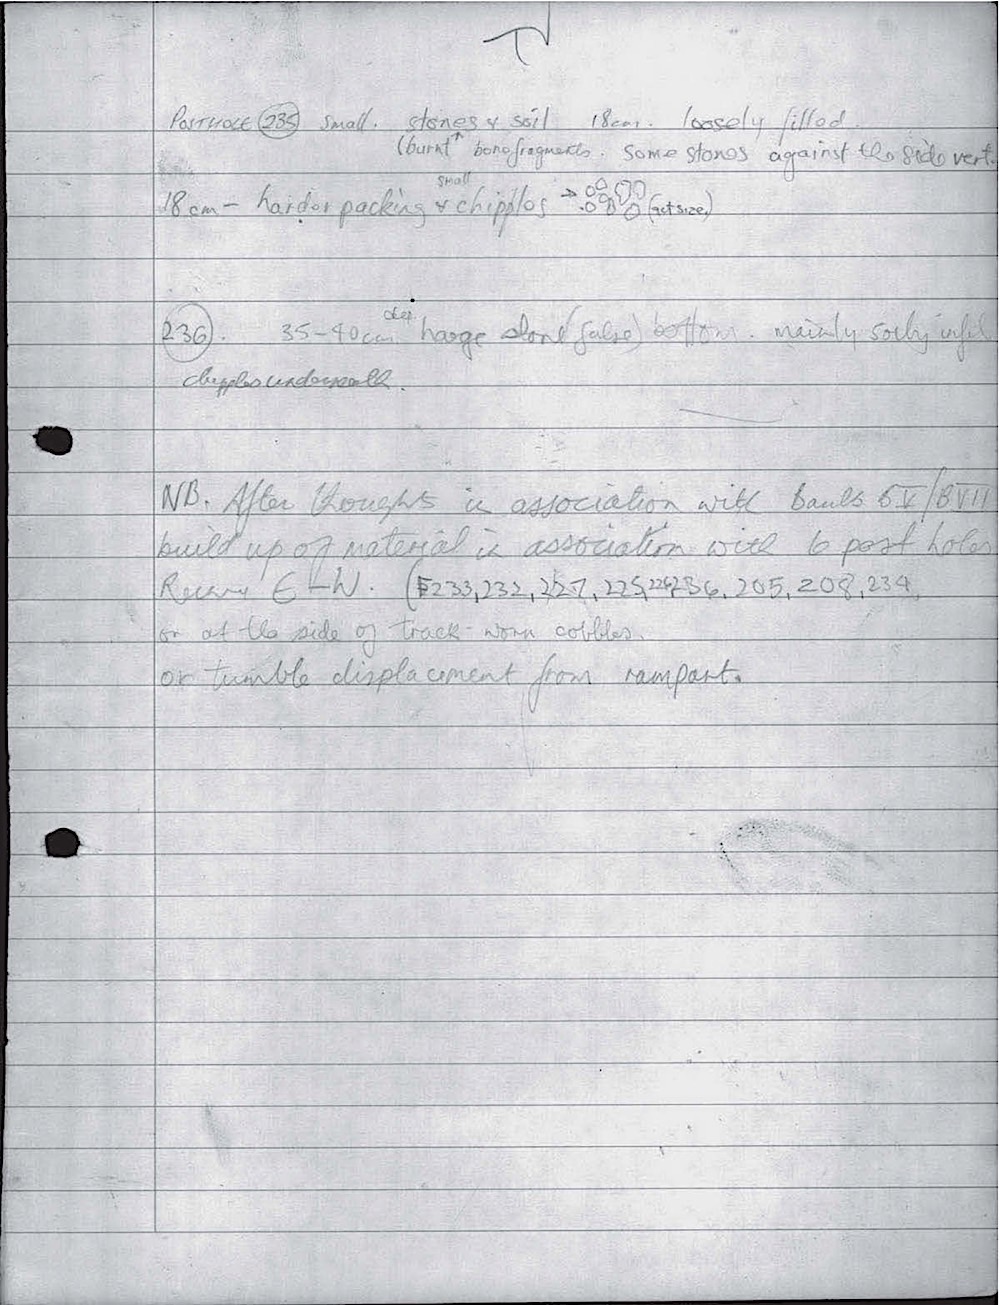 POSTHOLE (235) small. stones & soil 18cm. loosely filled.
(burnt bone fragments. Some stones against the side vert.
small
18cm – harder packing & chipples → (act size)
deep
(236). 35–40cm large stone (false) bottom. mainly infil
chipples underneath.
NB. After thoughts in association with banks /BVII
build up of material in association with 6 post holes
E–W. (F233, 232, 227, 225, 226, 236, 205, 208, 234
or at the side of track-worn cobbles.
or tumble displacement from rampart.